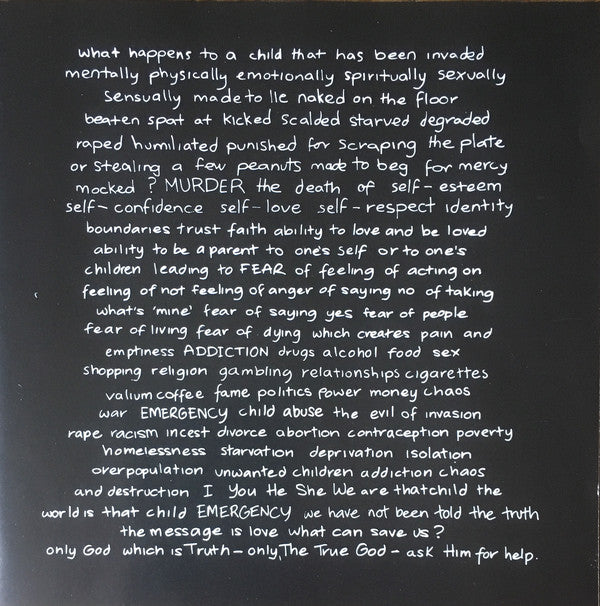 what happens to a child that has been invaded
mentally physically emotionally spiritually sexually
sensually made to lie naked on the floor
beaten spat at kicked scalded starved degraded
raped humiliated punished for scraping the plate
or stealing a few peanuts made to beg for mercy
mocked ? MURDER the death of self-esteem
self-confidence self-love self-respect identity
boundaries trust faith ability to love and be loved
ability to be a parent to one's self or to one's
children leading to FEAR of feeling of acting on
feeling of not feeling of anger of saying no of taking
what's 'mine' fear of saying yes fear of people
fear of living fear of dying which creates pain and
emptiness ADDICTION drugs alcohol food sex
shopping religion gambling relationships cigarettes
valium coffee fame politics power money chaos
war EMERGENCY child abuse the evil of invasion
rape racism incest divorce abortion contraception poverty
homelessness starvation deprivation isolation
overpopulation unwanted children addiction chaos
and destruction I You He She We are that child the
world is that child EMERGENCY we have not been told the truth
the message is love what can save us?
only God which is Truth - only, The True God - ask Him for help.